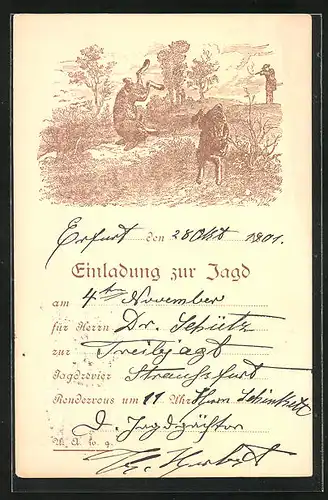 Erfurt den 28 Okt 1901.
Einladung zur Jagd
am 4ten November
für Herrn Dr. Schütz
zur Treibjagt
Jagdrevier Straussfurt
Rendezvous um 11 Uhr Herrn
D. Jagdpächter
U. A. w. g.